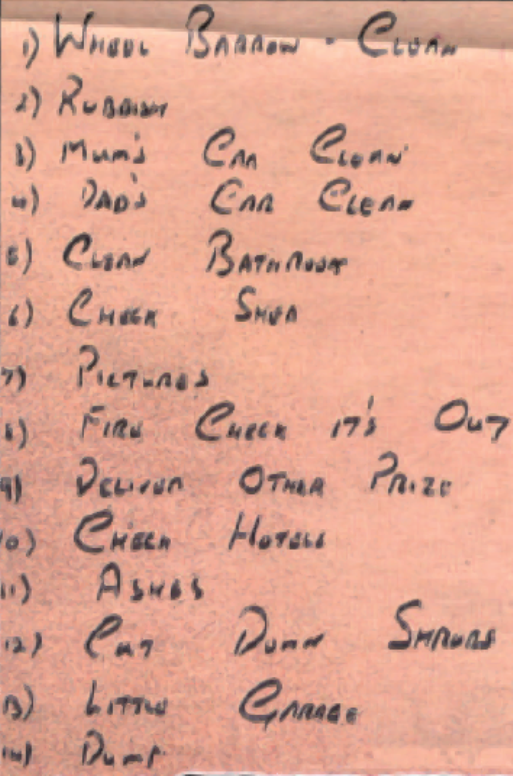 1) WHEEL BARROW - CLEAN
2) RUBBISH
3) MUM'S CAR CLEAN
4) DAD'S CAR CLEAN
5) CLEAN BATHROOM
6) CHECK SHED
7) PICTURES
8) FIRE CHECK IT'S OUT
9) DELIVER OTHER PRIZE
10) CHECK HOTELS
11) ASHES
12) CUT DOWN SHRUBS
13) LITTLE GARAGE
14) DUMP